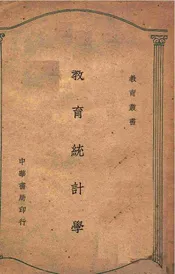 教育叢書
教育統計學
中華書局印行